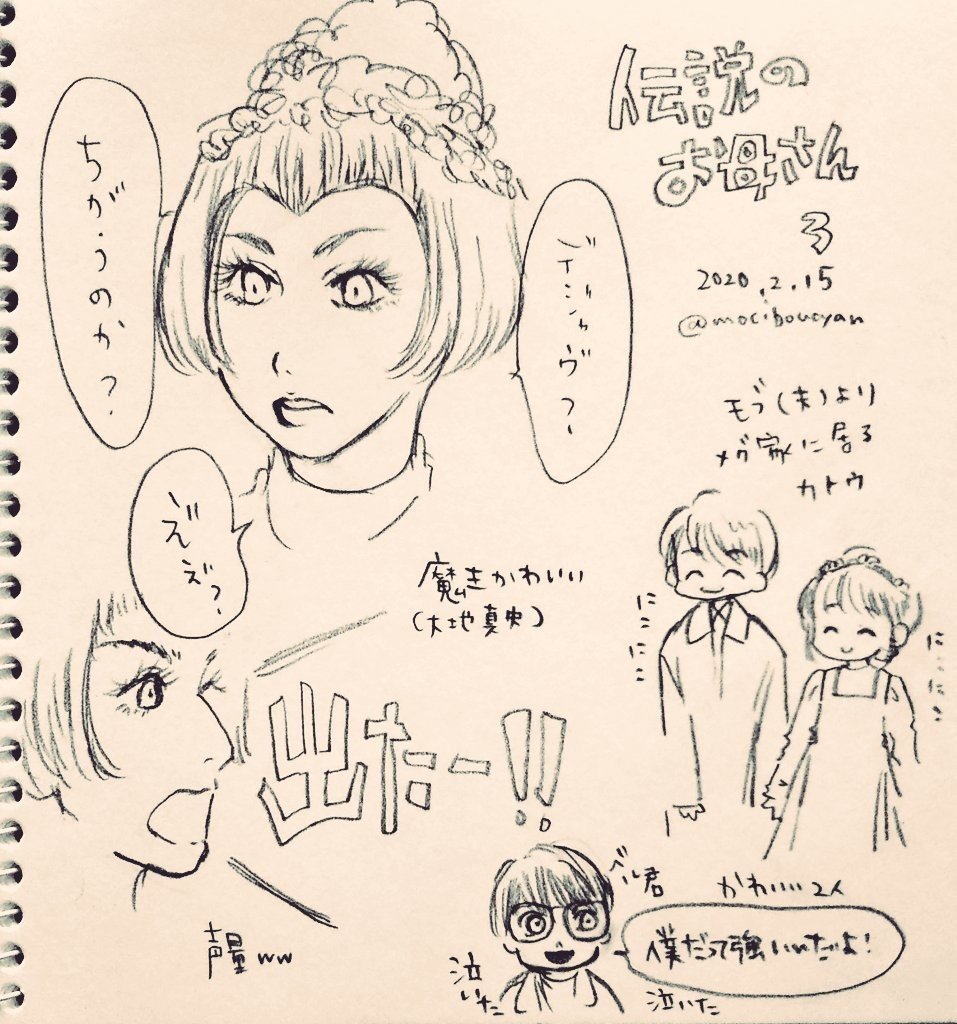 伝説の
お母さん
3
2020.2.15
@mocibouoyan
デジャヴ？
ちがうのか？
モブ(夫)より
メグ家に居る
カトウ
ぶえ？
魔王かわいい
(大地真央)
にこにこ
にこにこ
出たー!!
声量ww
ベル君
かわいい2人
僕だって強いんだよ!
泣いた
泣いた